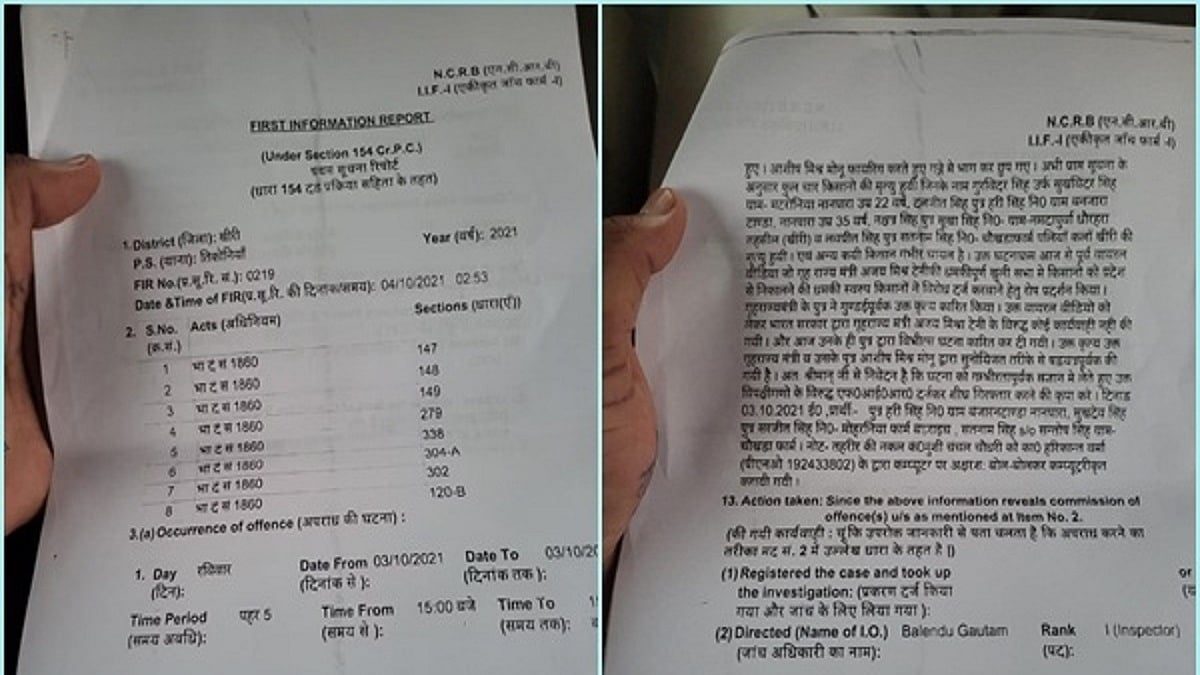 N.C.R.B (एन.सी.आर.बी)
I.I.F.-I (एकीकृत जाँच फार्म -I)
FIRST INFORMATION REPORT
(Under Section 154 Cr.P.C.)
प्रथम सूचना रिपोर्ट
(धारा 154 दंड प्रक्रिया संहिता के तहत)
1. District (जिला): खीरी
Year (वर्ष): 2021
P.S. (थाना): तिकोनियाँ
FIR No.(प्र.सू.रि. सं.): 0219
Date &Time of FIR(प्र.सू.रि. की दिनांक/समय): 04/10/2021 02:53
2. S.No. Acts (अधिनियम) Sections (धारा(एँ))
(क्र.सं.)
1 भा द सं 1860 147
2 भा द सं 1860 148
3 भा द सं 1860 149
4 भा द सं 1860 279
5 भा द सं 1860 338
6 भा द सं 1860 304-A
7 भा द सं 1860 302
8 भा द सं 1860 120-B
3.(a) Occurrence of offence (अपराध की घटना) :
1. Day रविवार Date From 03/10/2021 Date To 03/10/20
(दिन): (दिनांक से ): (दिनांक तक ):
Time Period पहर 5 Time From 15:00 बजे Time To
(समय अवधि): (समय से ): (समय तक):
N.C.R.B (एन.सी.आर.बी)
I.I.F.-I (एकीकृत जाँच फार्म -I)
हुए । आशीष मिश्र मोनू फायरिंग करते हुए गन्ने मे भाग कर छुप गए । अभी प्राप्त सूचना के
अनुसार कुल चार किसानो की मृत्यु हुयी जिनके नाम गुरविंदर सिंह उर्फ सुखविंदर सिंह
ग्राम- मटरोनिया नानपारा उम्र 22 वर्ष, दलजीत सिंह पुत्र हरी सिंह नि0 ग्राम बनजारा
टाण्डा, नानपारा उम्र 35 वर्ष, नक्षत्र सिंह पुत्र सुखा सिंह नि0- ग्राम-नमदापुर्वा धौरहरा
तहसील (खीरी) व लवप्रीत सिंह पुत्र सतनाम सिंह नि0- चौखडाफार्म पलियाँ कलाँ खीरी की
मृत्यु हुयी । एवं अन्य कयी किसान गंभीर घायल है । उक्त घटनाक्रम आज से पूर्व वायरल
वीडियो जो गृह राज्य मंत्री अजय मिश्र टेनीकी धमकीपूर्ण खुली सभा मे किसानो को प्रदेश
से निकालने की धमकी स्वरुप किसानो ने विरोध दर्ज करवाने हेतु रोष प्रदर्शन किया ।
गृहराज्यमंत्री के पुत्र ने गुण्डईपूर्वक उक्त कृत्य कारित किया । उक्त वायरल वीडियो को
लेकर भारत सरकार द्वारा गृहराज्य मंत्री अजय मिश्रा टेनी के विरुद्ध कोई कार्यवाही नही की
गयी । और आज उनके ही पुत्र द्वारा विभीत्स घटना कारित कर दी गयी । उक्त कृत्य उक्त
गृहराज्य मंत्री व उनके पुत्र आशिष मिश्र मोनू द्वारा सुनोयिजत तरीके से षडयंत्रपूर्वक की
गयी है । अतः श्रीमान् जी से निवेदन है कि घटना को गम्भीरतापूर्वक संज्ञान मे लेते हुए उक्त
विपक्षीगणो के विरुद्ध एफ0आई0आर0 दर्जकर शीघ्र गिरफ्तार करने की कृपा करे । दिनाड
03.10.2021 ई0 ,प्रार्थी- पुत्र हरी सिंह नि0 ग्राम बंजारनटाण्डा नानपारा, सुखदेव सिंह
पुत्र सरजीत सिंह नि0- मोहरनिया फार्म बहराइच , सतनाम सिंह s/o सन्तोष सिंह ग्राम-
चौखडा फार्म । नोट- तहरीर की नकल क0मुंशी चंचल चौधरी को का0 हरिकान्त वर्मा
(पीएनओ 192433802) के द्वारा कम्प्यूटर पर अक्षरशः बोल-बोलकर कम्प्यूटरीकृत
करायी गयी ।
13. Action taken: Since the above information reveals commission of
offence(s) u/s as mentioned at Item No. 2.
(की गयी कार्यवाही : चूंकि उपरोक्त जानकारी से पता चलता है कि अपराध करने का
तरीका मद सं. 2 में उल्लेख धारा के तहत है |)
(1) Registered the case and took up or
the investigation: (प्रकरण दर्ज किया
गया और जांच के लिए लिया गया ):
(2) Directed (Name of I.O.) Balendu Gautam Rank I (Inspector)
(जांच अधिकारी का नाम): (पद):